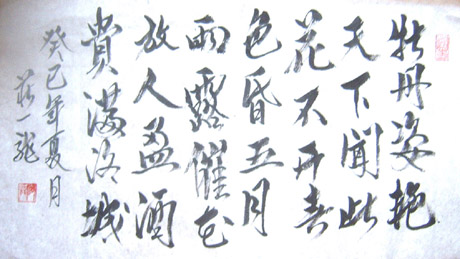 牡丹姿艳
天下聞此
花不开春
色昏五月
雨露催花
放人盈酒
貴滿洛城
癸巳年夏月